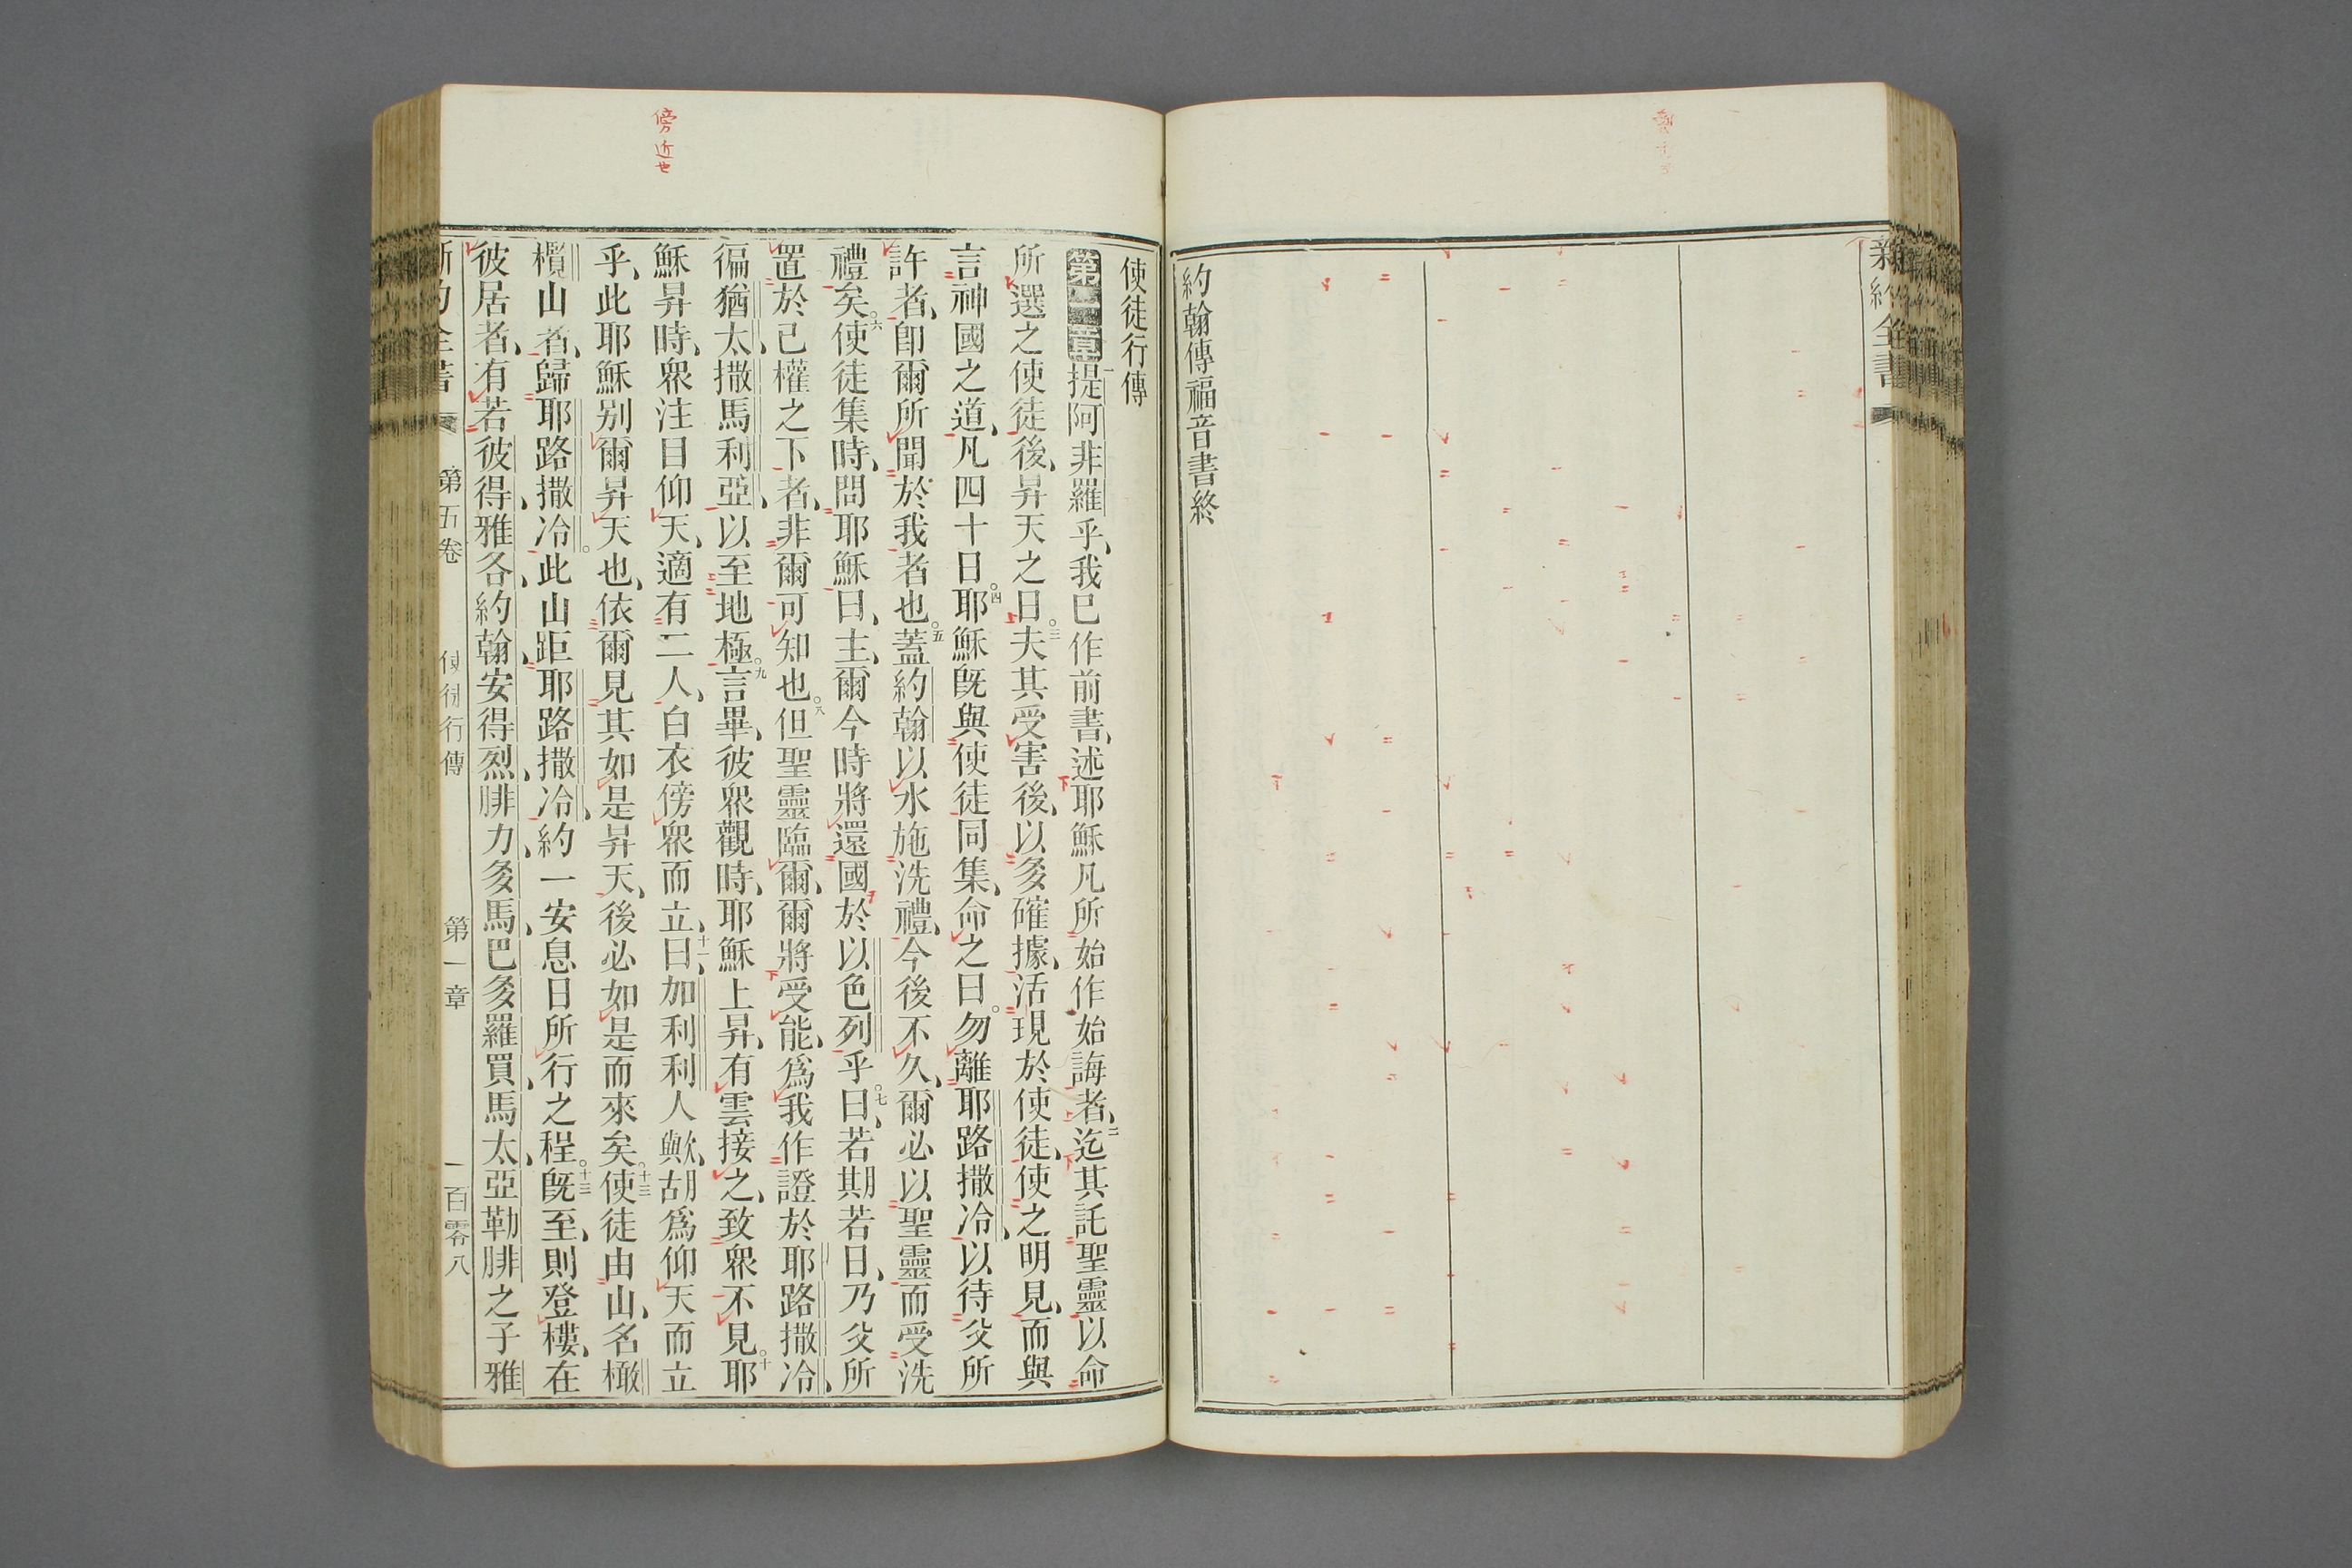 新約全書
約翰傳福音書終
使徒行傳
第一章提阿非羅乎、我已作前書、述耶穌凡所始作始誨者、二迄其託聖靈以命
所選之使徒後、昇天之日。三夫其受害後、以多確據、活現於使徒、使之明見、而與
言神國之道、凡四十日。四耶穌旣與使徒同集、命之曰。勿離耶路撒冷、以待父所
許者、卽爾所聞於我者也。五蓋約翰以水施洗禮、今後不久、爾必以聖靈而受洗
禮矣。六使徒集時、問耶穌曰、主、爾今時將還國於以色列乎。七曰、若期若日、乃父所
置於己權之下者、非爾可知也。八但聖靈臨爾、爾將受能、爲我作證於耶路撒冷、
徧猶太、撒馬利亞、以至地極。九言畢、彼衆觀時、耶穌上昇、有雲接之、致衆不見。十耶
穌昇時、衆注目仰天、適有二人、白衣傍衆而立、十一曰、加利利人歟、胡爲仰天而立
乎、此耶穌别爾昇天也、依爾見其如是昇天、後必如是而來矣。十二使徒由山、名橄
欖山者、歸耶路撒冷。此山距耶路撒冷、約一安息日所行之程。十三旣至、則登樓、在
彼居者、有若彼得、雅各、約翰、安得烈、腓力、多馬、巴多羅買、馬太、亞勒腓之子雅
新約全書 第五卷 使徒行傳 第一章 一百零八
傍近也